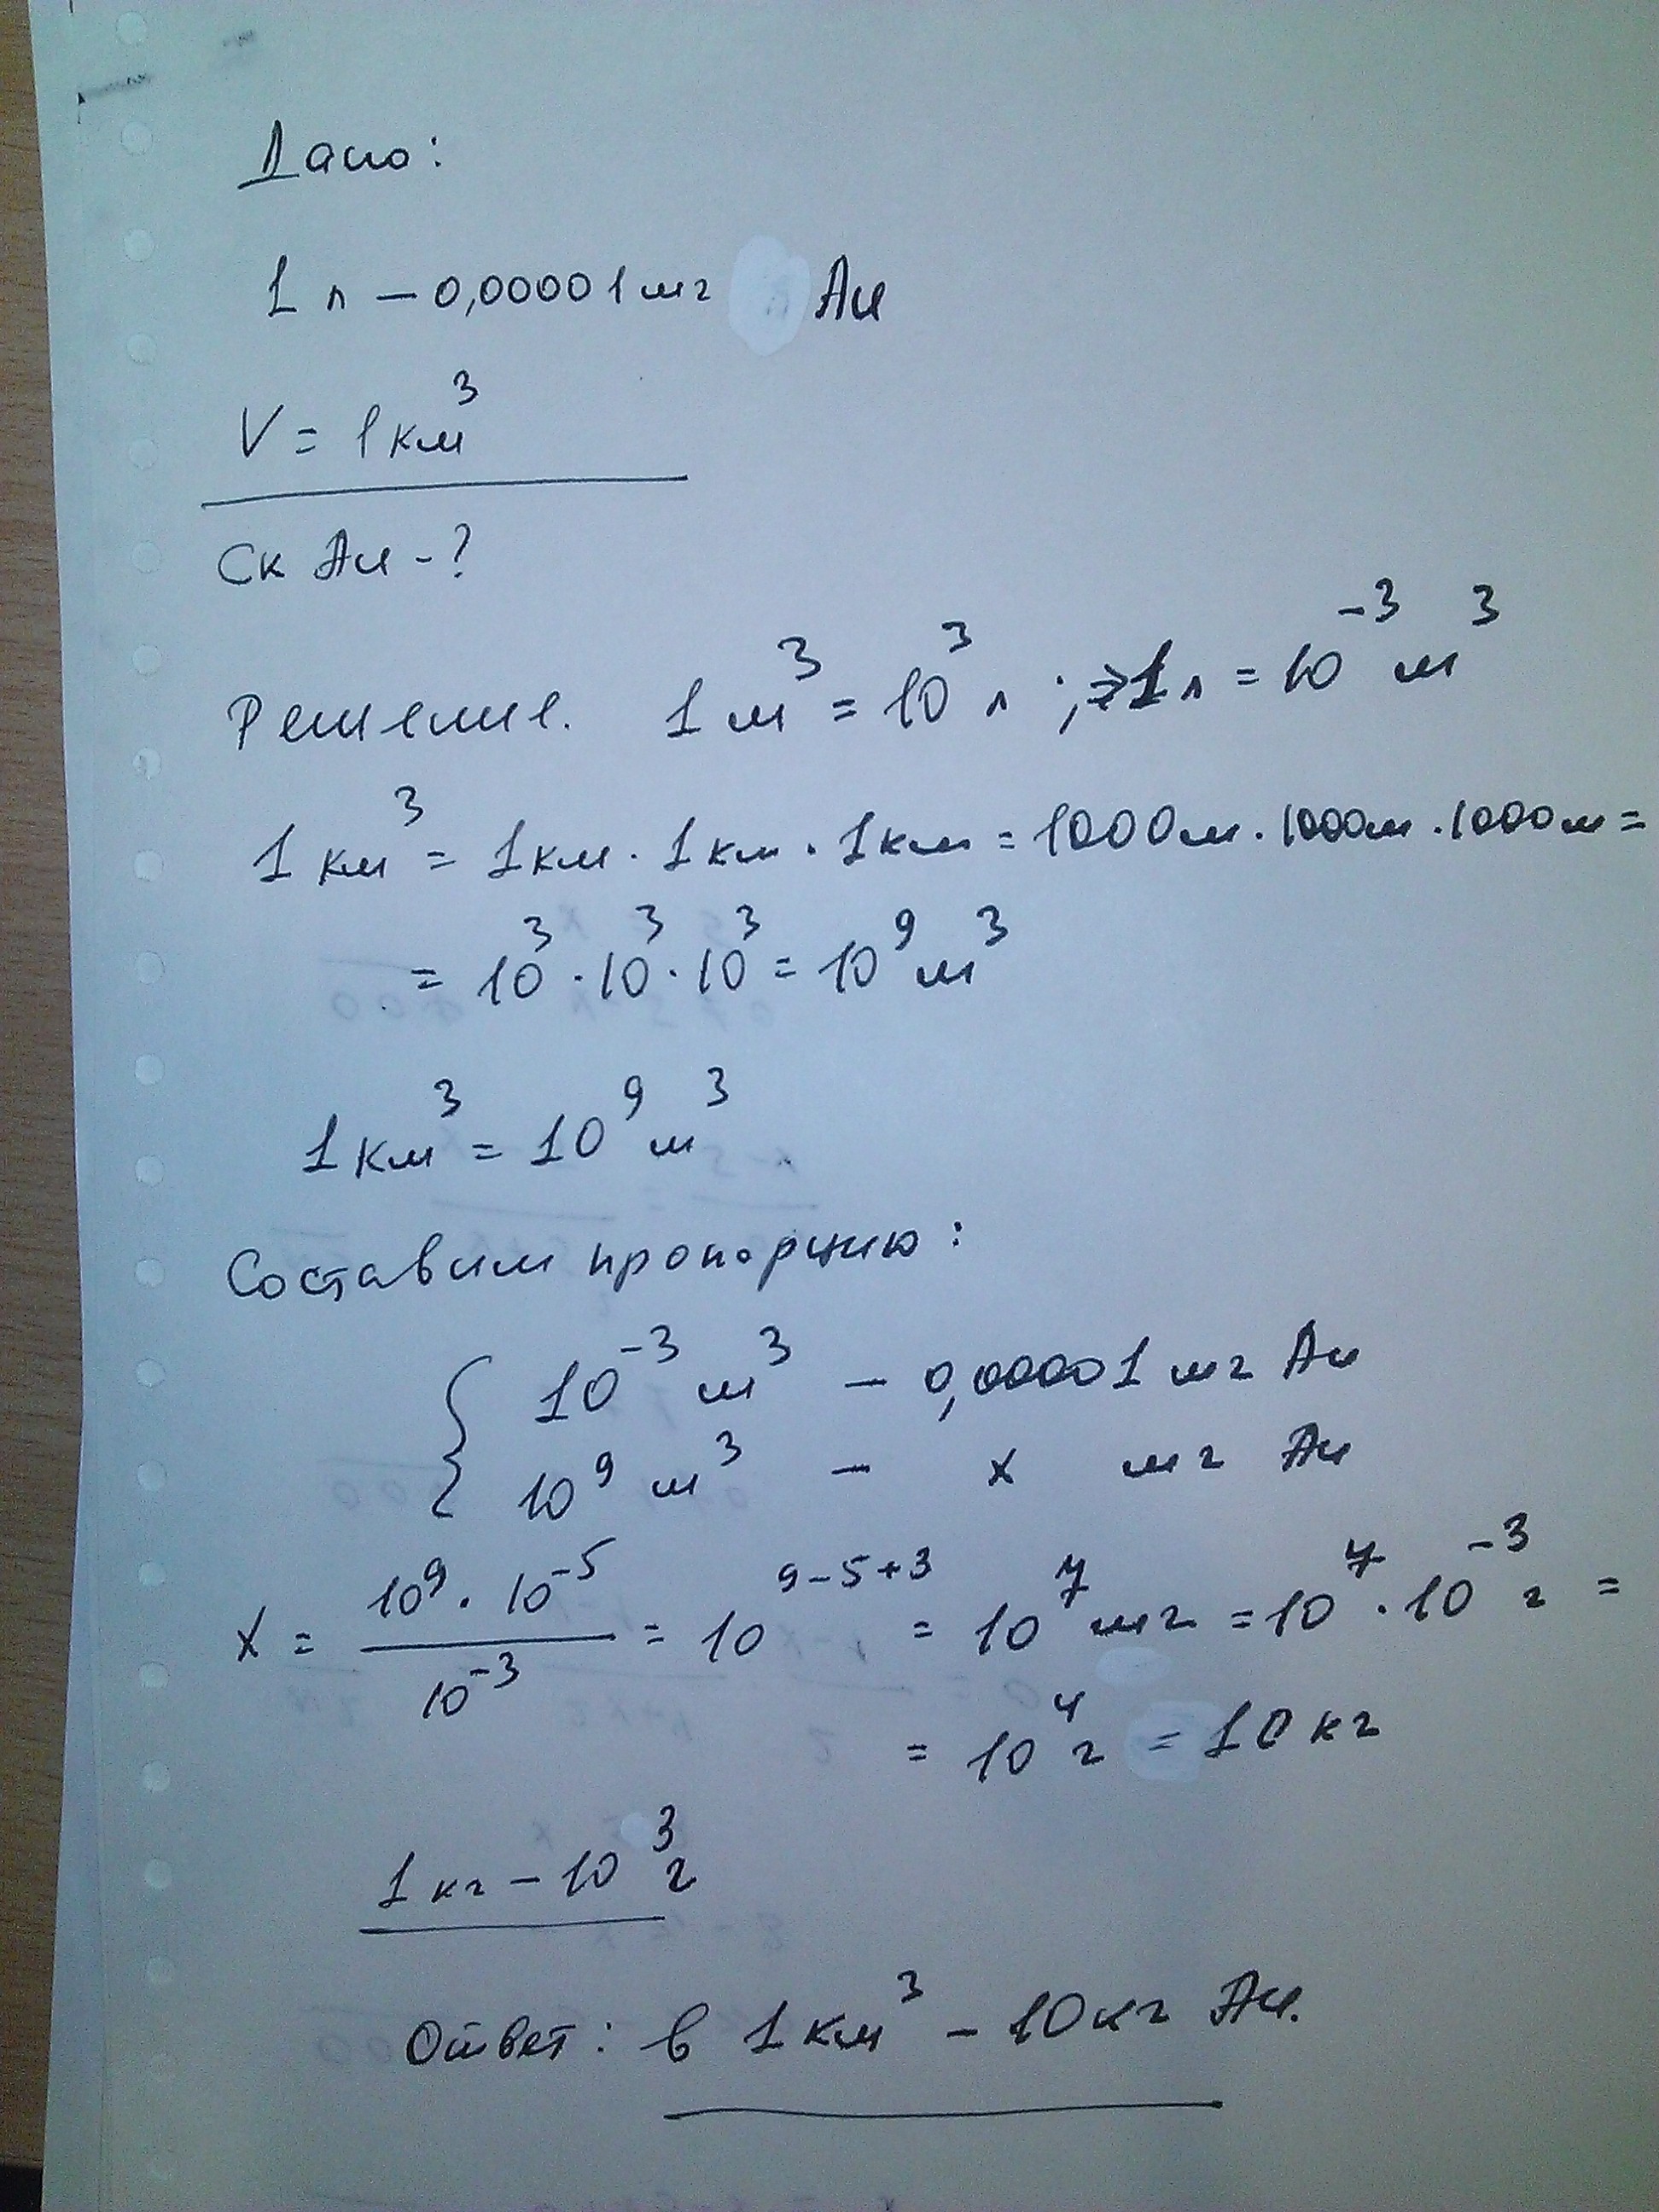 Дано:
1 л – 0,00001 мг Au
V = 1 км³
Ск Au - ?
Решение. 1 м³ = 10³ л ; ⇒ 1 л = 10⁻³ м³
1 км³ = 1 км · 1 км · 1 км = 1000 м · 1000 м · 1000 м =
= 10³ · 10³ · 10³ = 10⁹ м³
1 км³ = 10⁹ м³
Составим пропорцию:
{ 10⁻³ м³ – 0,00001 мг Au
10⁹ м³ – x мг Au
x = 10⁹ · 10⁻⁵ / 10⁻³ = 10⁹⁻⁵⁺³ = 10⁷ мг = 10⁷ · 10⁻³ г =
= 10⁴ г = 10 кг
1 кг – 10³ г
Ответ: в 1 км³ – 10 кг Au.